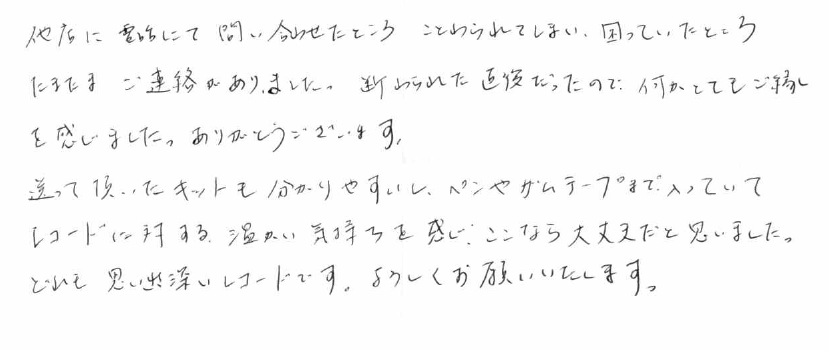 他店に電話にて問い合わせたところ ことわられてしまい、困っていたところ
たまたま ご連絡がありました。断わられた直後だったので、何かとてもご縁
を感じました。ありがとうございます。
送って頂いたキットも分かりやすいし、ペンやガムテープまで入っていて
レコードに対する温かい気持ちを感じ、ここなら大丈夫だと思いました。
どれも思い出深いレコードです。よろしくお願いいたします。